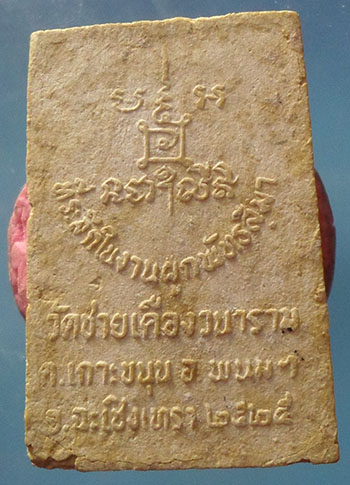 ที่ระลึกในงานผูกพัทธสีมา
วัดชายเคืองวนาราม
ต.เกาะขนุน อ พนมฯ
จ.ฉะเชิงเทรา ๒๕๒๕